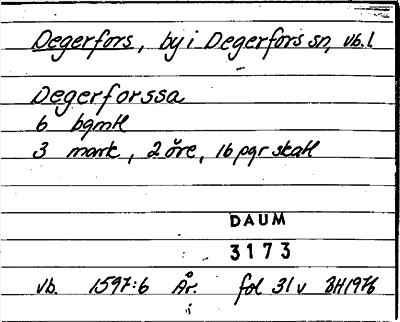 Degerfors, by i Degerfors sn, vb. l
Degerforssa
6 bgmtl
3 mark, 2 öre, 16 pgr skatt
DAUM
3173
vb. 1597:6 År. fol 31v BH1976